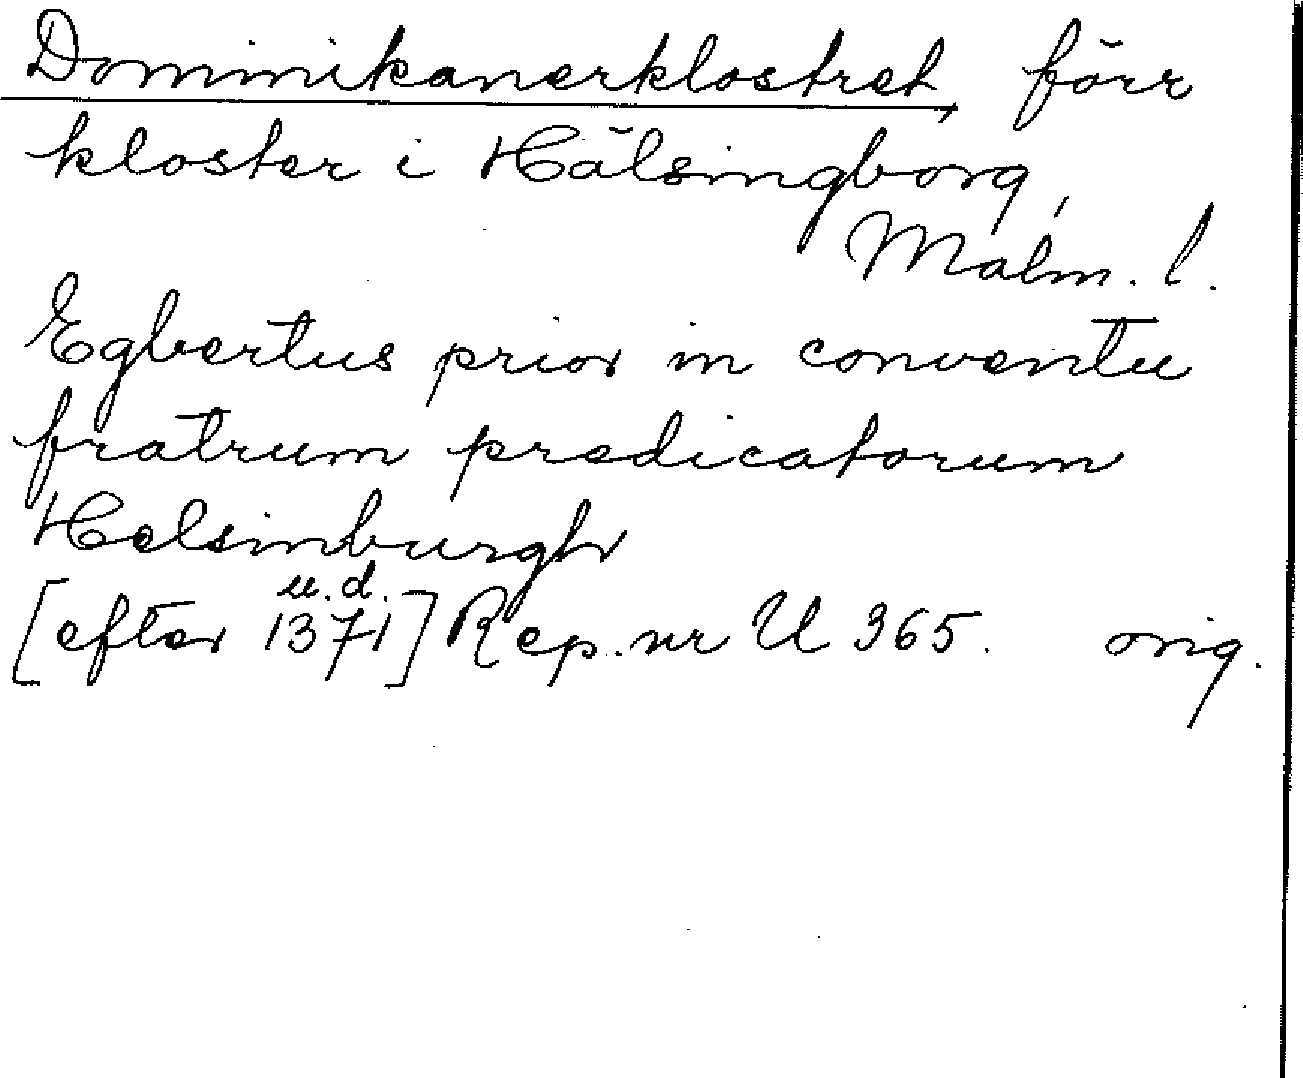 Dominikanerklostret, förr
kloster i Hälsingborg,
Malm. l.
Egbertus prior in conventu
fratrum predicatorum
Helsinburgh
u. d.
[efter 1371] Rep. nr U 365. orig.